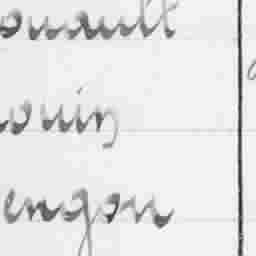 ouault
ouin
engon